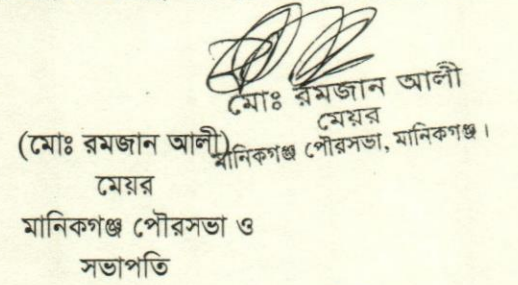 মোঃ রমজান আলী
মেয়র
মানিকগঞ্জ পৌরসভা, মানিকগঞ্জ।
(মোঃ রমজান আলী)
মেয়র
মানিকগঞ্জ পৌরসভা ও
সভাপতি